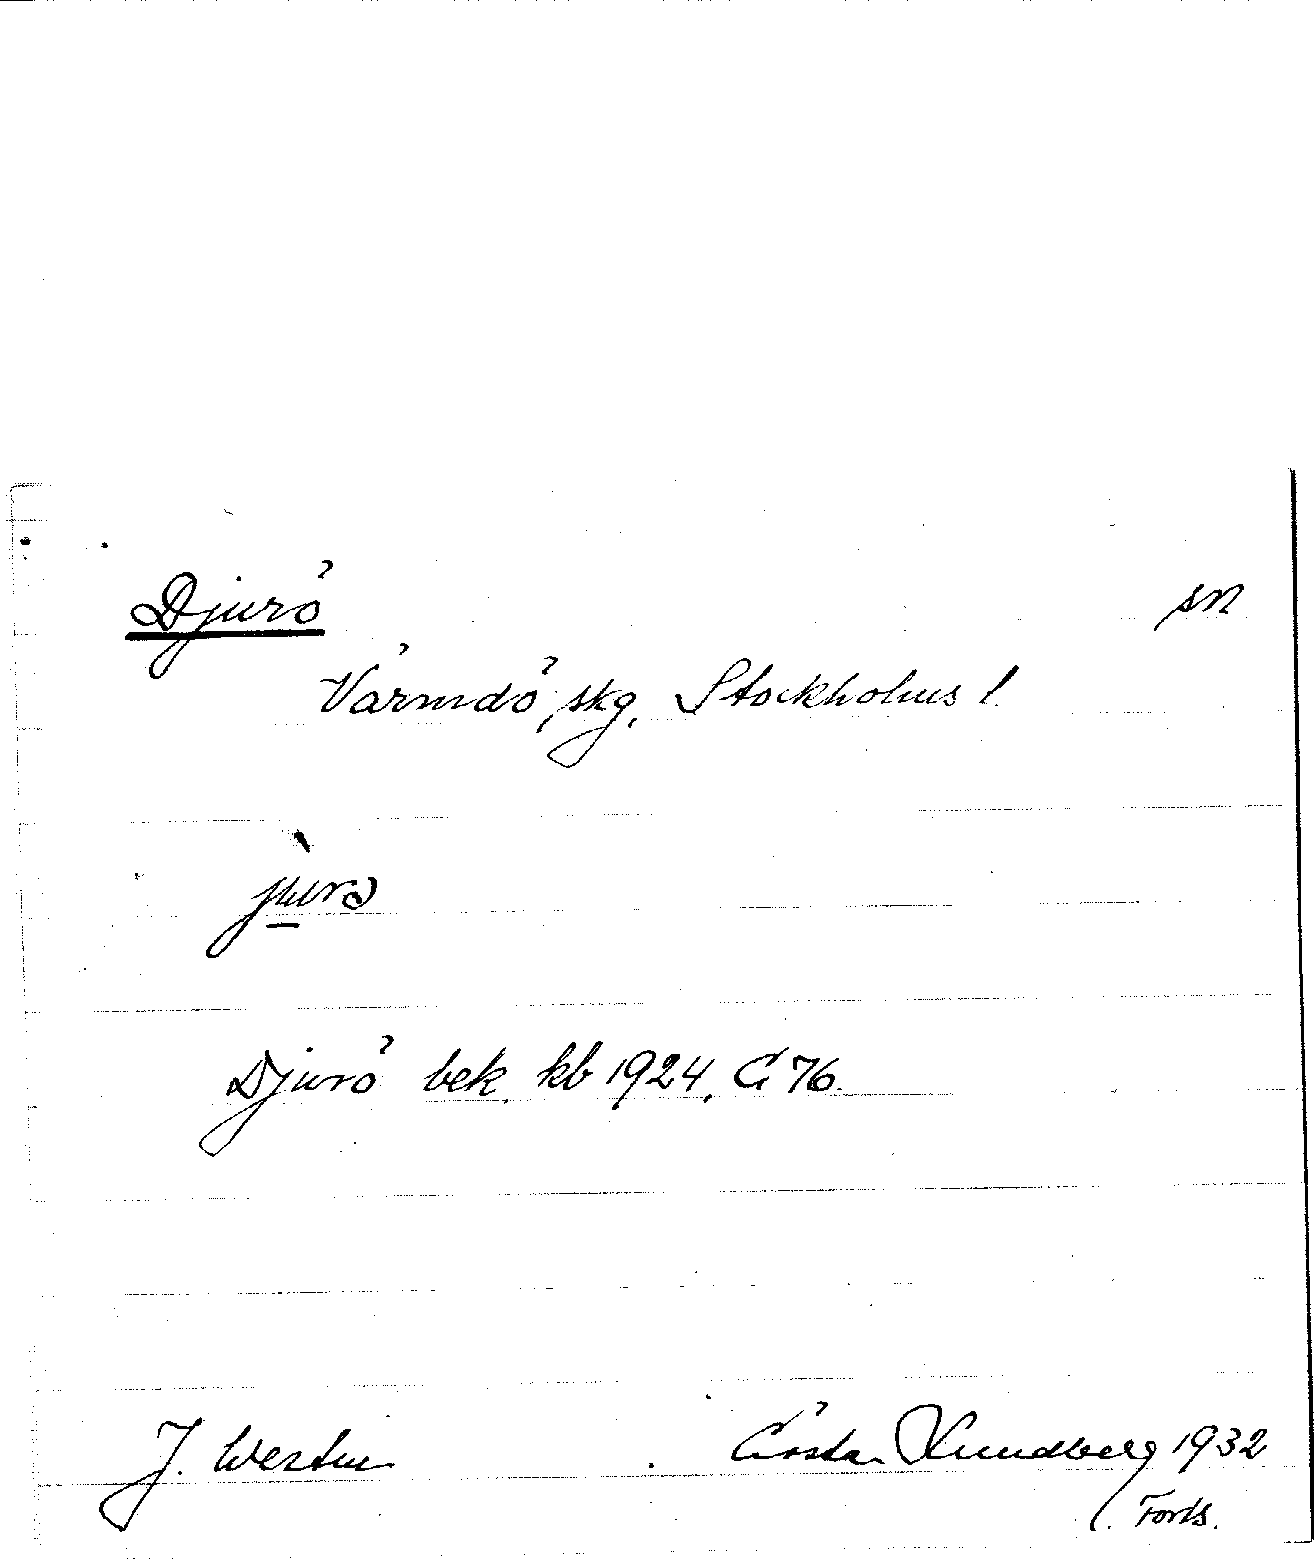 Djurö sn
Värmdö skg, Stockholms l.
Djurö bek. kb 1924, G 76.
J. Westin Gösta Lundberg 1932
Forts.